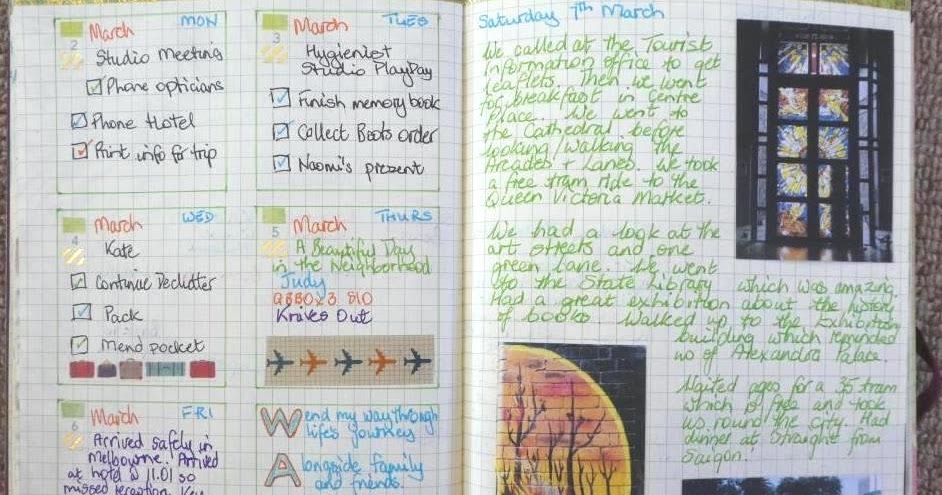 MON
2 March
Studio meeting
Phone opticians
Phone Hotel
Print info for trip
TUES
3 March
Hygienist
Studio PlayDay
Finish memory book
Collect Boots order
Naomi's present
WED
4 March
Kate
Continue Declutter
Pack
Mend pocket
THURS
5 March
A Beautiful Day
in the Neighborhood
Judy
Knives Out
FRI
6 March
Arrived safely in
Melbourne. Arrived
at hotel @ 11.01 so
missed reception. Key
Wend my way through
life's journey
Alongside family
and friends.
Saturday 7th March
We called at the Tourist
Information office to get
leaflets. Then we went
for breakfast in Centre
Place. We went to
the Cathedral before
looking/walking the
Arcades + Lanes. We took
a free tram ride to the
Queen Victoria Market.
We had a look at the
art streets and one
green lane. We went
to the State Library which was amazing.
Had a great exhibition about the history
of books. Walked up to the Exhibition
building which reminded
us of Alexandra Palace.
Waited ages for a 35 tram
which is free and took
us round the city. Had
dinner at Straight from
Saigon.